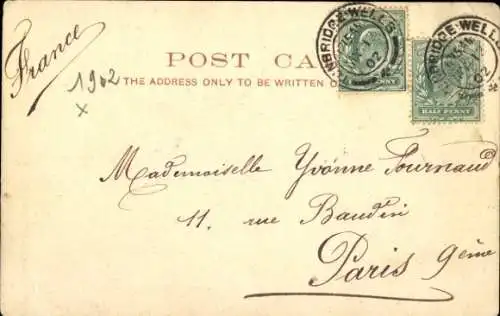 France
1902
x
POST CA
THE ADDRESS ONLY TO BE WRITTEN O
NBRIDGE-WELLS
02
PENNY
BRIDGE-WELL
02
HALF PENNY
Mademoiselle Yvonne Fournaud
11, rue Baudin
Paris 9ème